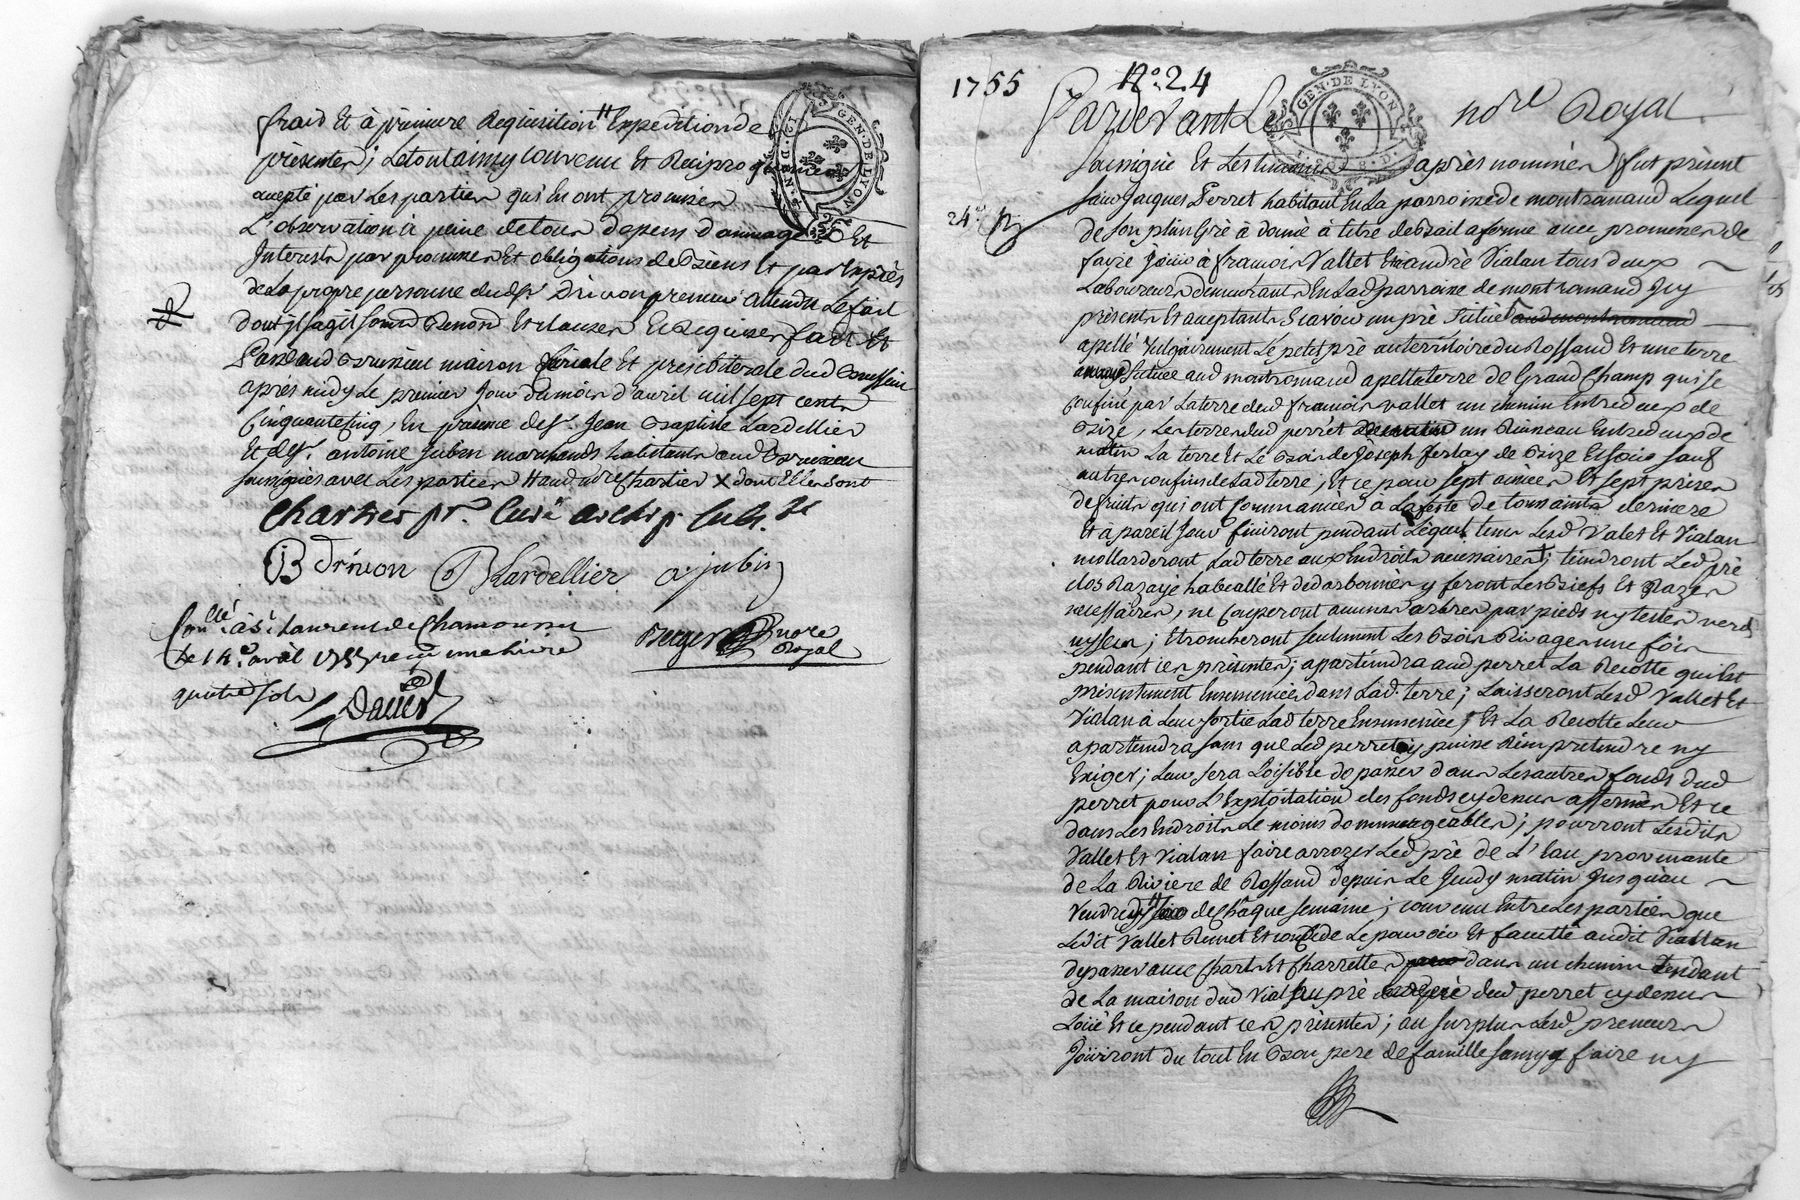 frais Et à première Requisition Expedition de
presentes; Le tout ainsy convenu Et Reciproquement
accepté par Les parties qui En ont promises
L'observation à peine de tous depens dommages Et
Interests par promesses Et obligations de Biens Et par Exprès
de La propre personne dud Sr. Drivon preneur attendu Le fait
dont il s'agit soumis Renon Et clauses Et Requises fait Et
Passé aud Brussieu maison Curiale Et presbiterale dud Brussieu
après midy Le premier Jour du mois d'avril mil sept cents
Cinquante Cinq, En présence de Sr. Jean Baptiste Lardellier
Et de Sr. antoine Jubin marchands habitants aud Brussieu
soussignés avec Les parties # aud Sr Chartier x dont Elles sont
Chartier pr. Curé archip.
JB Drivon B Lardellier a. jubin
Con.llé à St Laurens de Chamousset
Le 14e avril 1755 reçu une Livre
quatre sols
Berger nore
Royal
David
GEN. DE LYON
1755 No. 24
Pardevant Le nore Royal
soussigné Et Les temoins après nommés fut présent
Sieur Jacques Perret habitant En La parroisse de montromand Lequel
de son plein Gré à donné à titre de Bail a ferme avec promesses de
faire Jouir à francois Vallet Et andré Vialan tous deux
Laboureurs demeurants En Lad parroisse de montromand Icy
présents Et acceptants Scavoir un pré Situé aud montromand
apellé Vulgairement Le petit pré au territoire du Rossand Et une terre
Située aud montromand apellé terre de Grand Champ qui se
confine par La terre dud francois vallet un chemin Entredeux de
Bize, Les terres dud perret un Ruisseau Entredeux de
matin La terre Et Le Bois de Joseph ferlay de Bize Et soir sauf
autres confins de Lad terre; Et ce pour sept années Et sept prises
de fruits qui ont Commancées à La feste de toussaints derniere
Et à pareil Jour finiront pendant Lequel tems Lesd Valet Et Vialan
mollarderont Lad terre aux Endroits necessaires; tiendront Led pré
clos Razayé habeallé Et dedarbonnés y feront Les Biefs Et Razes
necessaires, ne Couperont aucuns arbres par pieds ny testes verds
ny secs; Etrocheront seulement Les Bois Rivages une fois
pendant ces présentes; apartiendra aud perret La Recolte qui Est
présentement Ensemencée dans Lad. terre; Laisseront Lesd Vallet Et
Vialan à Leur sortie Lad terre Ensemencée, Et La Recolte Leur
apartiendra sans que Led perret y puisse Rien pretendre ny
Exiger; Leur sera Loisible de passer dans Les autres fonds dud
perret pour L'Exploitation des fonds cydessus affermés Et ce
dans Les Endroits Le moins dommageables; pourront Lesdits
Vallet Et Vialan faire arrozer Led pré de L'Eau provenante
de La Riviere de Rossand depuis Le Jeudy matin Jusqu'au
Vendredy soir de Chaque semaine; convenu Entre Les parties que
Ledit Vallet Remet Et concede Le pouvoir Et faculté audit Viallan
de passer avec Chars Et Charrettes dans un chemin Tendant
de La maison dud Vial au pré dud perret cydessus
Loüé Et ce pendant ces présentes; au surplus Lesd preneurs
Joüiront du tout En Bon pere de famille sans y faire ny